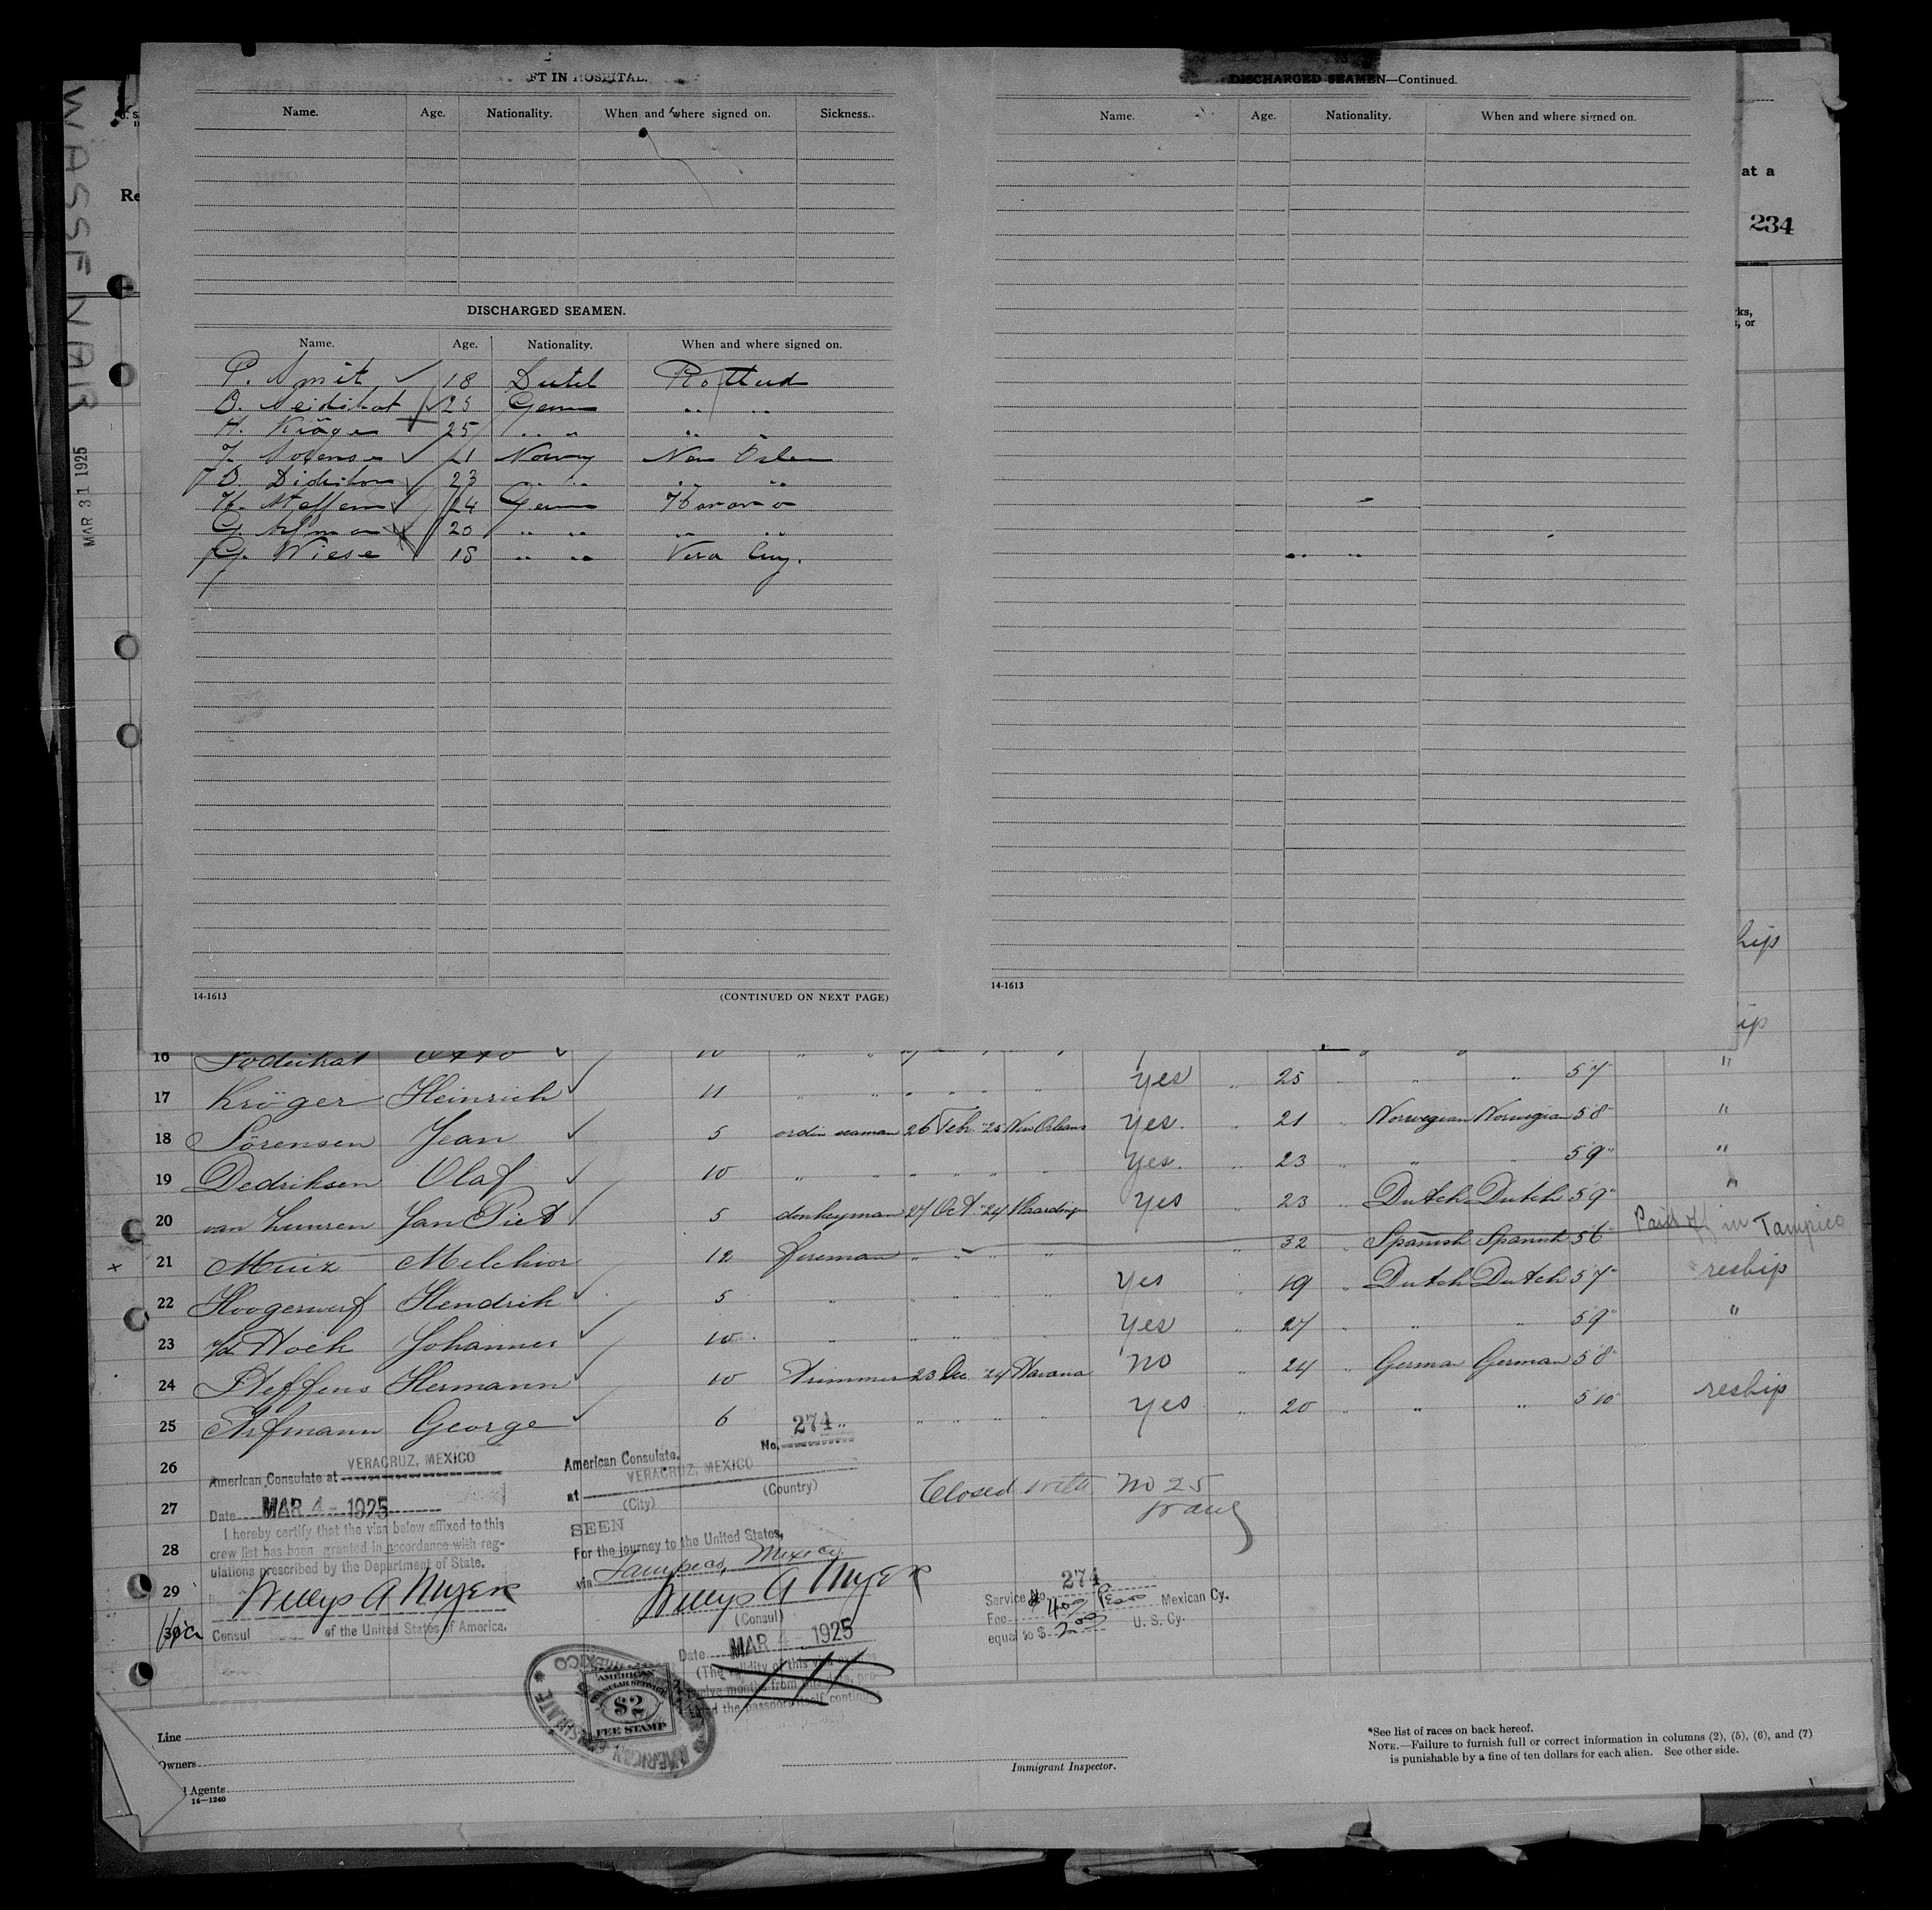 WASSENAAR
MAR 31 1925
Re
at a
234
ks,
, or
FT IN HOSPITAL.
Name. Age. Nationality. When and where signed on. Sickness..
DISCHARGED SEAMEN.
Name. Age. Nationality. When and where signed on.
P. Smit 18 Dutch
O. 25 Germ " "
H. Kröger 25 " " " "
J. Sorensen 21 Norway New Orlean
O. 23 " " " "
H. Steffens 24 Germ Havana
G. 20 " " " "
G. Wiese 18 " " Vera Cruz.
14-1613 (CONTINUED ON NEXT PAGE)
DISCHARGED SEAMEN—Continued.
Name. Age. Nationality. When and where signed on.
" "
14-1613
hip
ip
16 Otto 10 "
17 Kröger Heinrich 11 " " " " " Yes " 25 " " " 5'7" "
18 Sörensen Jean 5 ordin seaman 26 Feb "25 New Orleans Yes. " 21 " Norwegian Norwegian 5'8" "
19 Dedriksen Olaf 10 " " " " " Yes. " 23 " " " 5'9" "
20 van Jan Piet 5 donkeyman 27 Oct "24 Vlaardingen Yes " 23 " Dutch Dutch 5'9" "
x 21 Muiz Melchior 12 fireman " " " " " 32 " Spanish Spanish 5'6" Paid off in Tampico
22 Hoogerwerf Hendrik 5 " " " " " Yes " 19 " Dutch Dutch 5'7" reship
23 v/d Hoek Johannes 10 " " " " " Yes " 27 " " " 5'9" "
24 Steffens Hermann 10 Trimmer 23 Dec "24 Havana No " 24 " German German 5'8"
25 Arfmann George 6 " " " " " Yes " 20 " " " 5'10" reship
26
27
28
29
30
American Consulate at VERACRUZ, MEXICO
Date MAR 4 - 1925
I hereby certify that the visa below affixed to this
crew list has been granted in accordance with reg-
ulations prescribed by the Department of State.
Willys A Myer
Consul of the United States of America.
No. 274
American Consulate,
at VERACRUZ, MEXICO
(City) (Country)
SEEN
For the journey to the United States,
via Tampico, Mexico.
Willys A Myer
(Consul)
Date MAR 4 1925
(The validity of this visa
twelve months from this date, pro-
the passport itself continues
Closed with No 25
Service No. 274
Fee $ 4.00 Pesos Mexican Cy.
equal to $ 2.00 U. S. Cy.
AMERICAN CONSULATE
MEXICO
AMERICAN
CONSULAR SERVICE
$2
FEE STAMP
Line
Owners
l Agents
14—1240
Immigrant Inspector.
*See list of races on back hereof.
NOTE.—Failure to furnish full or correct information in columns (2), (5), (6), and (7)
is punishable by a fine of ten dollars for each alien. See other side.